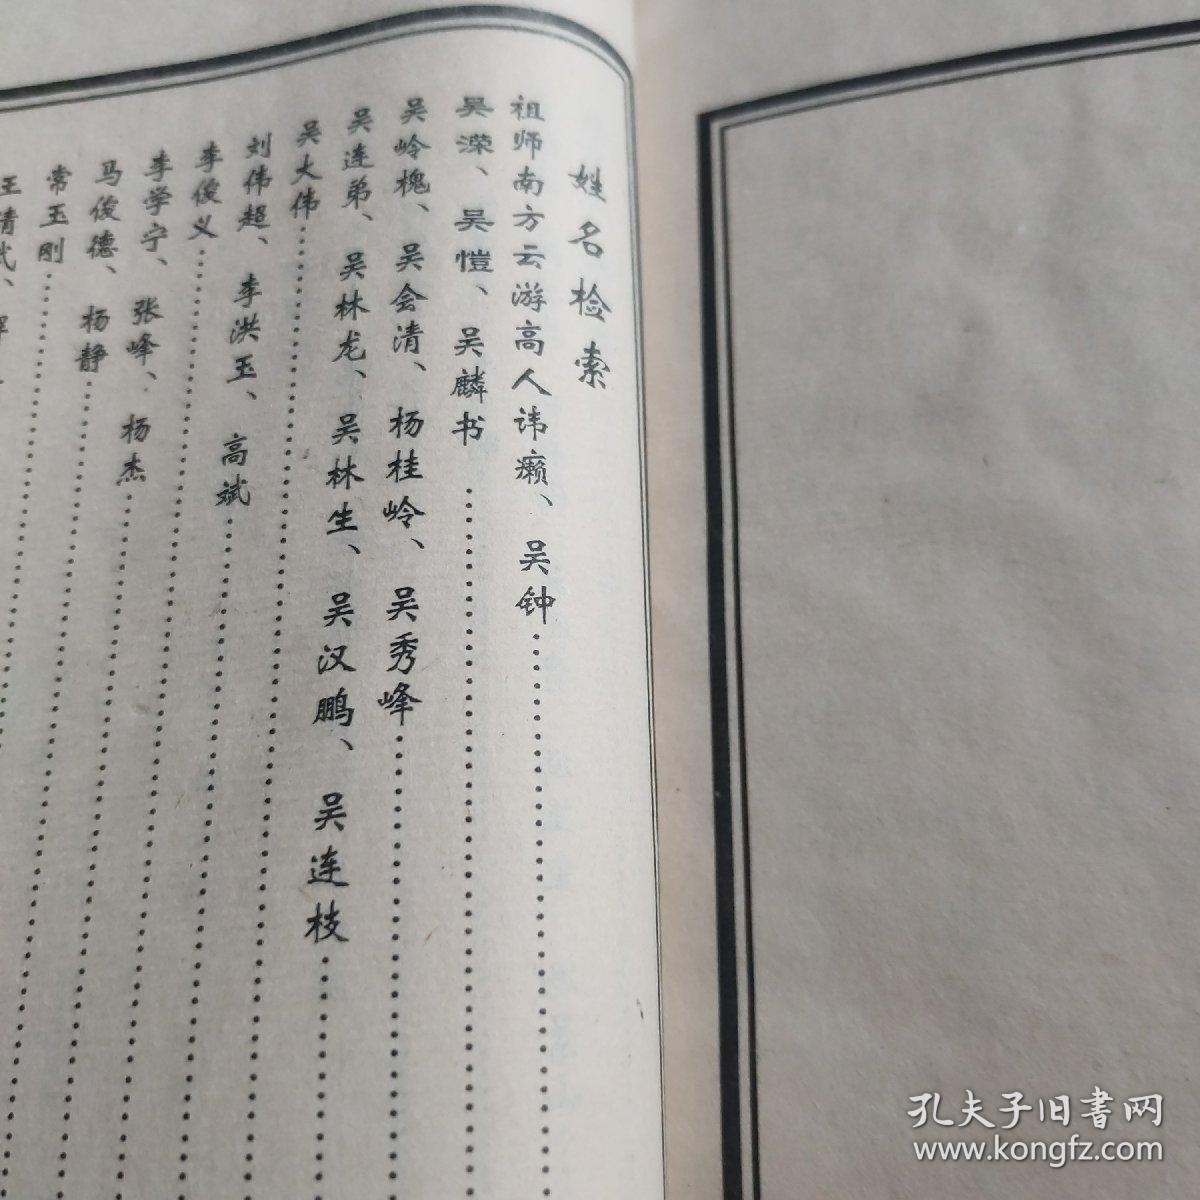 姓名检索
祖师南方云游高人讳癞、吴钟
吴溁、吴愷、吴麟书
吴岭槐、吴会清、杨桂岭、吴秀峰
吴连弟、吴林龙、吴林生、吴汉鹏、吴连枝
吴大伟
刘伟超、李洪玉、高斌
李俊义
李学宁、张峰、杨杰
马俊德、杨静
常玉刚
王清武、
孔夫子旧書网
www.kongfz.com